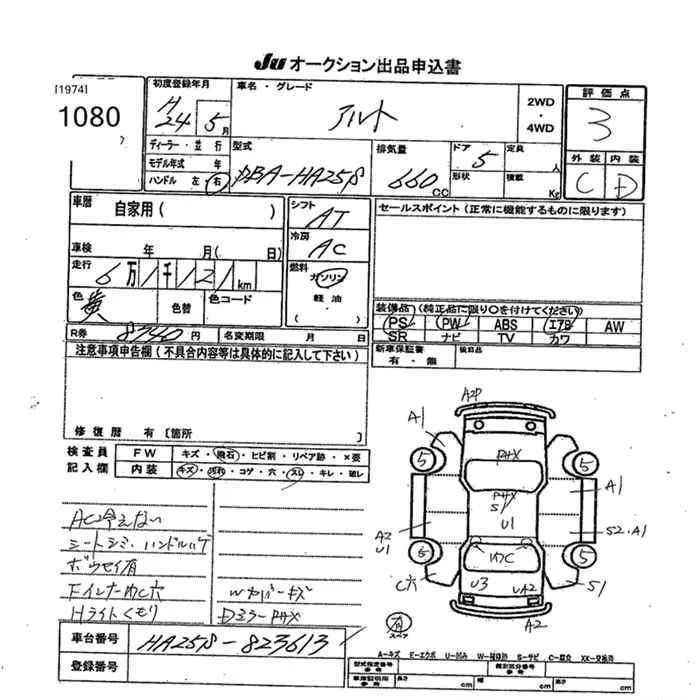 Ju オークション出品申込書
[1974]
1080
初度登録年月
H
24 5月
車名・グレード
アルト
2WD
・
4WD
評価点
3
外装 内装
C D
ディーラー・並行
モデル年式 年
ハンドル 左・右
型式
DBA-HA25S
排気量
660 CC
ドア 5
定員 人
形状
積載 Kg
車暦 自家用( )
シフト AT
冷房 AC
セールスポイント(正常に機能するものに限ります)
車検 年 月( 日)
走行 6万1千121km
燃料
ガソリン
軽油
・( )
色 黄
色替
色コード
装備品(純正品に限り○を付けてください)
PS PW ABS エアB AW
SR ナビ TV カワ
R券 8740円
名変期限 月 日
新車保証書
有・無
後日品
注意事項申告欄(不具合内容等は具体的に記入して下さい)
修復暦 有〔箇所 〕
検査員
記入欄
FW キズ・飛石・ヒビ割・リペア跡・×要
内装 キズ・汚れ・コゲ・穴・スレ・キレ・破レ
AC冷えない
シートシミ・ハンドルハゲ
ボウセイ有
Hライトくもり
A2P
A1
5
5
PキX
PキX
S1
U1
A1
A2
U1
S2・A1
5
U3
UA2
C穴
S1
A2
スペア
車台番号 HA25S-823613
登録番号
A-キズ E-エクボ U-凹み W-補修跡 S-サビ C-腐食 XX-交換済
型式指定番号
参考
類別区分番号
参考
車庫証明用
参考
長さ cm
幅 cm
高さ cm